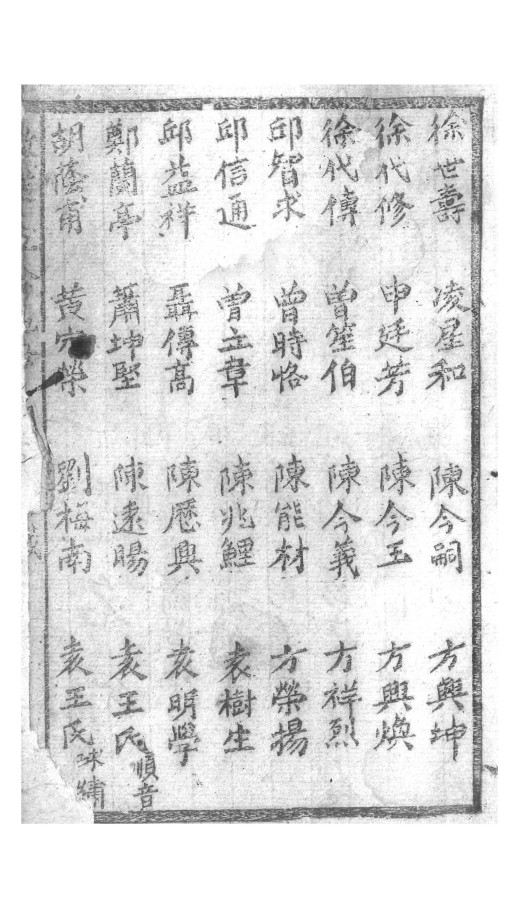 徐世壽 凌星和 陳今嗣 方興坤
徐代修 申廷芳 陳今玉 方興煥
徐代傳 曾笙伯 陳今義 方祥烈
邱智求 曾時恪 陳能材 方榮揚
邱信通 曾立韋 陳兆鯉 袁樹生
邱益祥 聶傳高 陳歷興 袁明學
鄭蘭亭 蕭坤堅 陳遠暘 袁王氏順音
胡蔭甫 黃 榮 劉梅南 袁王氏 繡